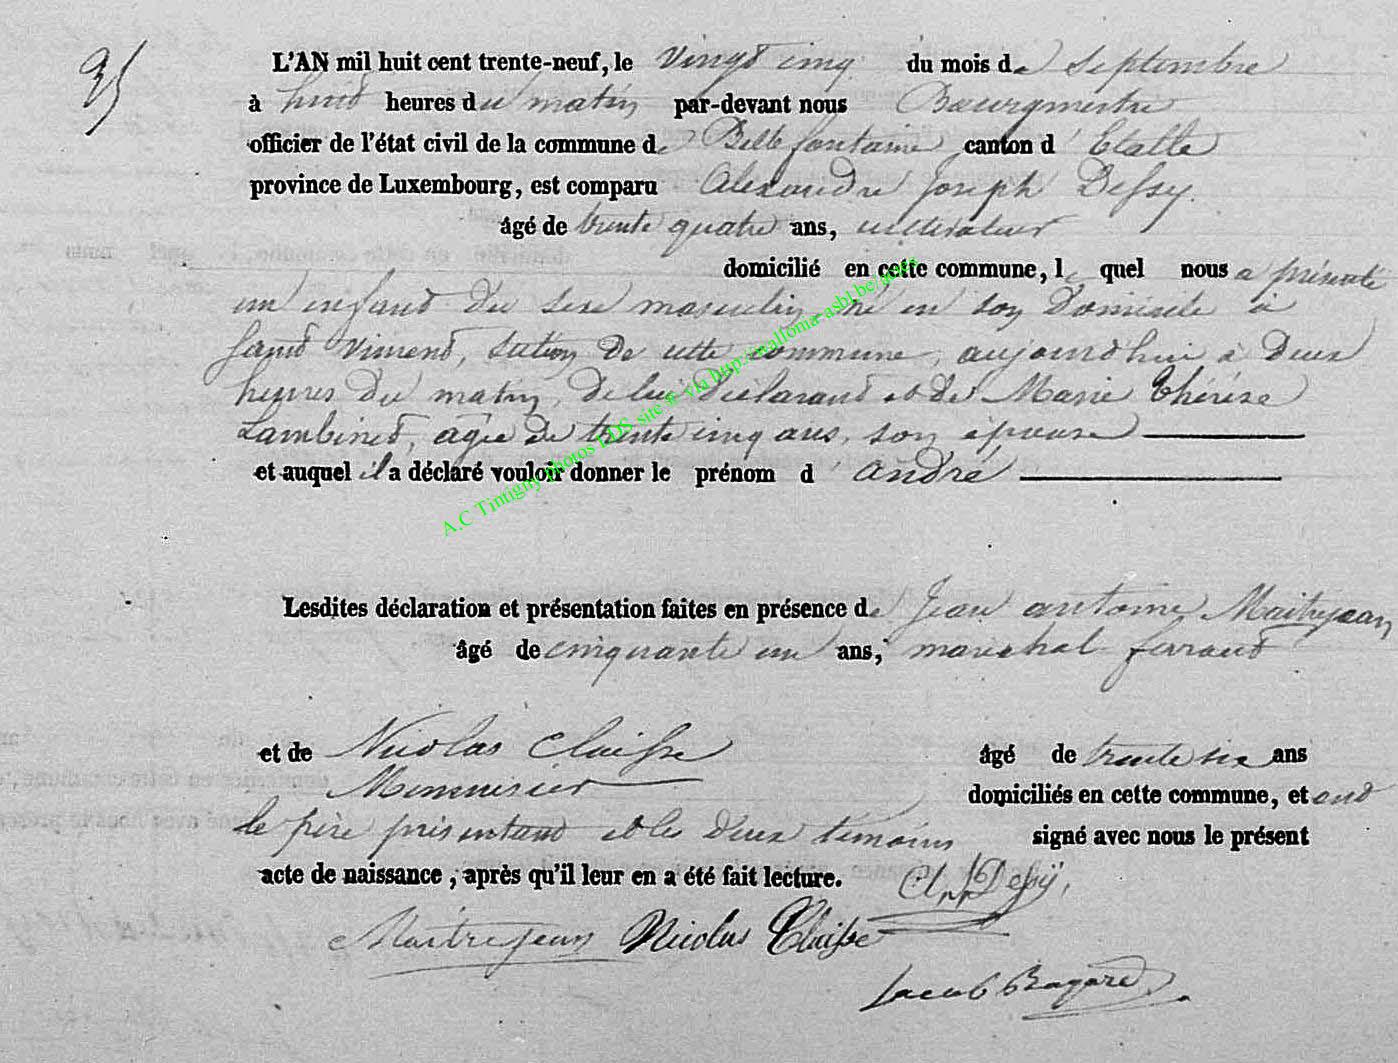 35
L'AN mil huit cent trente-neuf, le vingt cinq du mois de septembre
à huit heures du matin par-devant nous Bourgmestre
officier de l'état civil de la commune de Bellefontaine canton d' Etalle
province de Luxembourg, est comparu Alexandre Joseph Dessy.
âgé de trente quatre ans, cultivateur
domicilié en cette commune, le quel nous a présenté
un enfant du sexe masculin, né en son Domicile à
section de cette commune, aujourd'hui à deux
heures du matin, de lui déclarant et de Marie Thérèse
Lambinet, agée de trente cinq ans, son épouse
et auquel il a déclaré vouloir donner le prénom d' andré
Lesdites déclaration et présentation faites en présence de Jean antoine Maitrejean
âgé de cinquante un ans, maréchal ferrant
et de Nicolas Claisse âgé de trente six ans
Menuisier domiciliés en cette commune, et ont
le père présentant et les deux témoins signé avec nous le présent
acte de naissance, après qu'il leur en a été fait lecture. Dessÿ,
Maitrejean Nicolas Claisse
Jacob Bagard
A.C Tintigny photos LDS site © via http://wallonia-asbl.be/actes